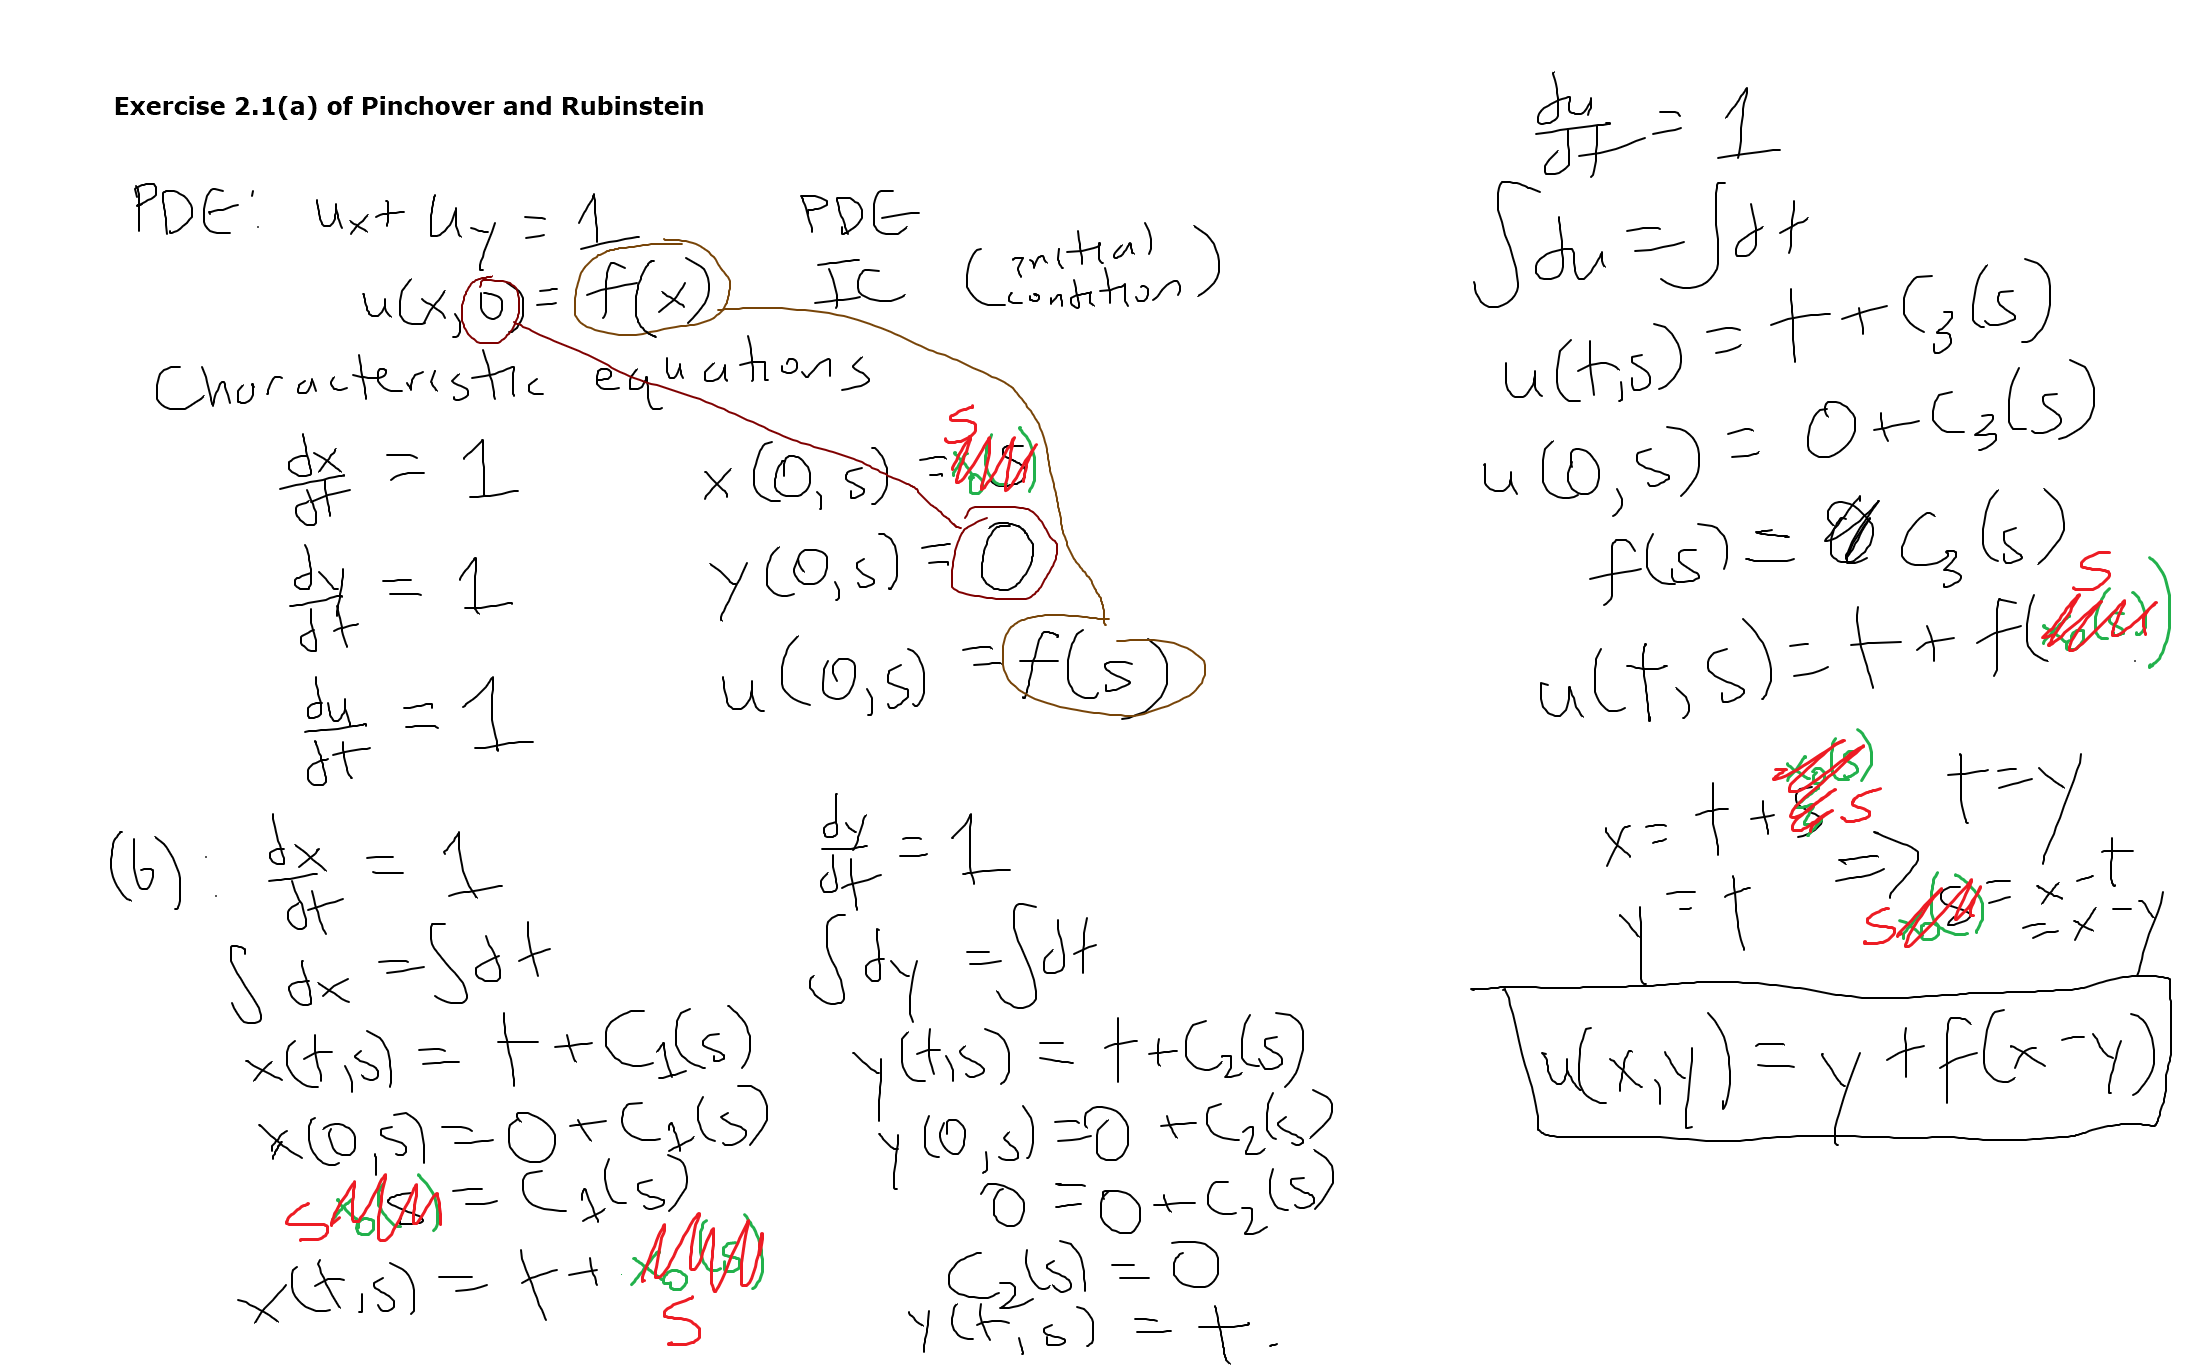 Exercise 2.1(a) of Pinchover and Rubinstein
PDE: u_x + u_y = 1 PDE
u(x, 0) = f(x) IC (initial condition)
Characteristic equations
dx/dt = 1 x(0,s) = s
dy/dt = 1 y(0,s) = 0
du/dt = 1 u(0,s) = f(s)
(b): dx/dt = 1
∫ dx = ∫ dt
x(t,s) = t + C_1(s)
x(0,s) = 0 + C_1(s)
s = C_1(s)
x(t,s) = t + s
dy/dt = 1
∫ dy = ∫ dt
y(t,s) = t + C_2(s)
y(0,s) = 0 + C_2(s)
0 = 0 + C_2(s)
C_2(s) = 0
y(t,s) = t.
du/dt = 1
∫ du = ∫ dt
u(t,s) = t + C_3(s)
u(0,s) = 0 + C_3(s)
f(s) = C_3(s)
u(t,s) = t + f(s)
x = t + s t = y
y = t => s = x - t
= x - y
u(x,y) = y + f(x-y)